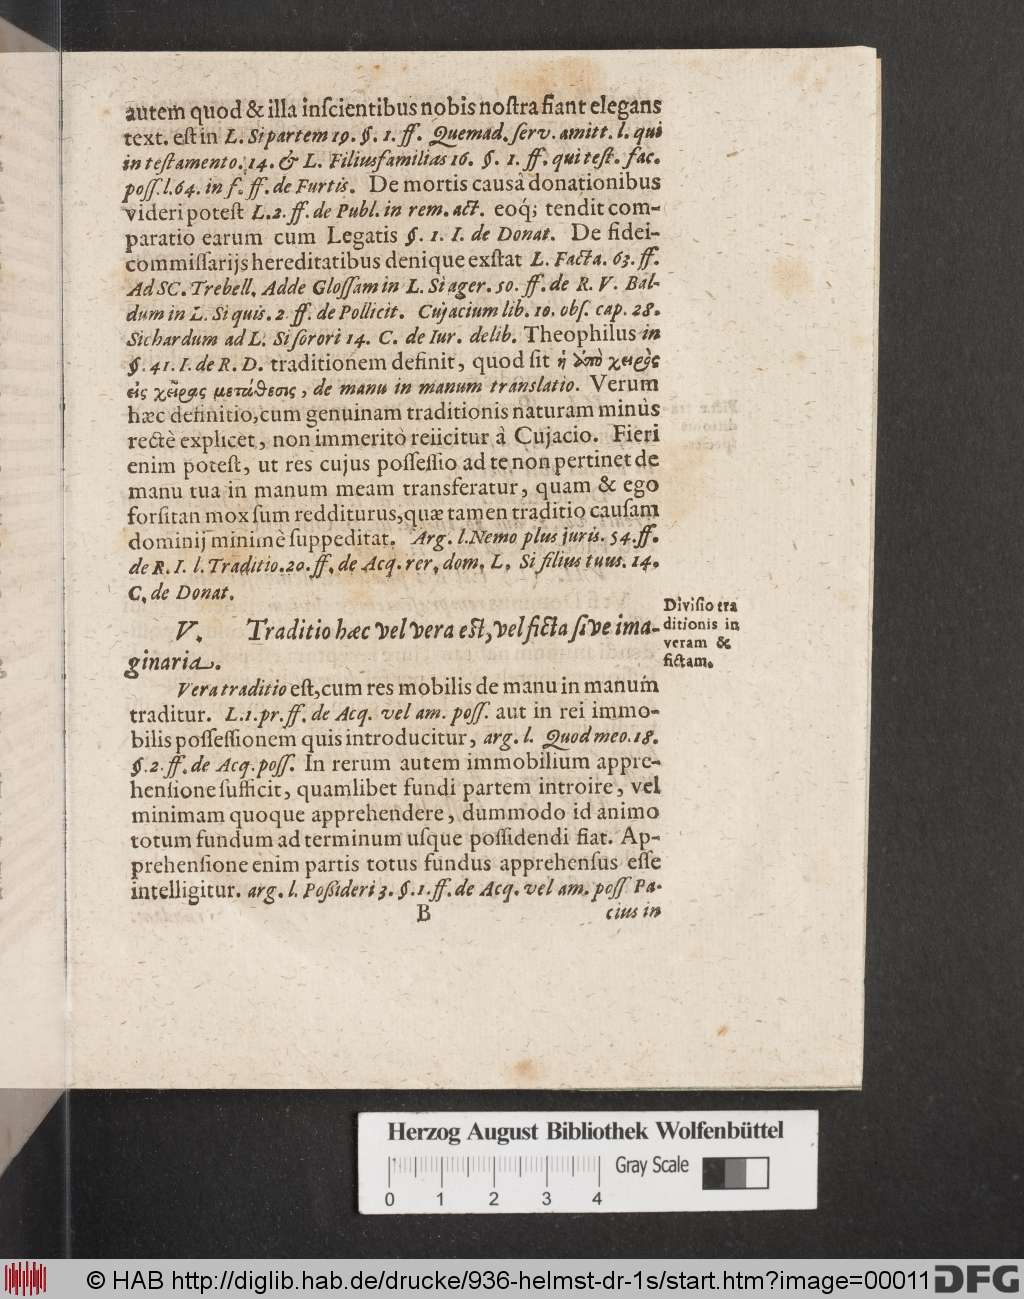 autem quod & illa inſcientibus nobis noſtra fiant elegans
text. eſt in L. Si partem 19. §. 1. ff. Quemad. ſerv. amitt. l. qui
in teſtamento. 14. & L. Filiusfamilias 16. §. 1. ff. qui teſt. fac.
poſſ. l. 64. in f. ff. de Furtis. De mortis causâ donationibus
videri poteſt L. 2. ff. de Publ. in rem. act. eoq́; tendit com-
paratio earum cum Legatis §. 1. I. de Donat. De fidei-
commiſſarijs hereditatibus denique exſtat L. Facta. 63. ff.
Ad SC. Trebell. Adde Gloſſam in L. Si ager. 50. ff. de R. V. Bal-
dum in L. Si quis. 2. ff. de Pollicit. Cujacium lib. 10. obſ. cap. 28.
Sichardum ad L. Si ſorori 14. C. de Iur. delib. Theophilus in
§. 41. I. de R. D. traditionem definit, quod ſit ἡ ἀπὸ χειρὸς
εἰς χεῖρας μετάθεσις, de manu in manum translatio. Verum
hæc definitio, cum genuinam traditionis naturam minùs
rectè explicet, non immeritò reiicitur à Cujacio. Fieri
enim poteſt, ut res cujus poſſeſſio ad te non pertinet de
manu tua in manum meam transferatur, quam & ego
forſitan mox ſum redditurus, quæ tamen traditio cauſam
dominij minimè ſuppeditat. Arg. l. Nemo plus juris. 54. ff.
de R. I. l. Traditio. 20. ff. de Acq. rer. dom. L. Si filius tuus. 14.
C. de Donat.
V. Traditio hæc vel vera eſt, vel ficta ſive ima-
ginaria.
Diviſio tra
ditionis in
veram &
fictam.
Vera traditio eſt, cum res mobilis de manu in manum
traditur. L. 1. pr. ff. de Acq. vel am. poſſ. aut in rei immo-
bilis poſſeſſionem quis introducitur, arg. l. Quod meo. 18.
§. 2. ff. de Acq. poſſ. In rerum autem immobilium appre-
henſione ſufficit, quamlibet fundi partem introire, vel
minimam quoque apprehendere, dummodo id animo
totum fundum ad terminum uſque poſſidendi fiat. Ap-
prehenſione enim partis totus fundus apprehenſus eſſe
intelligitur. arg. l. Poßideri 3. §. 1. ff. de Acq. vel am. poſſ. Pa-
B cius in
Herzog August Bibliothek Wolfenbüttel
Gray Scale
0 1 2 3 4
© HAB http://diglib.hab.de/drucke/936-helmst-dr-1s/start.htm?image=00011
DFG